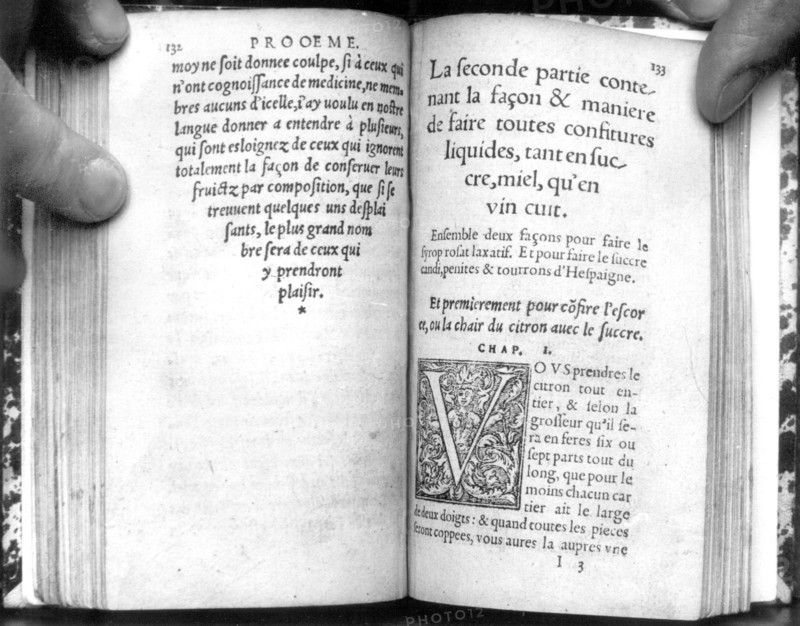 132
PROOEME.
moy ne ſoit donnee coulpe, ſi à ceux qui
n'ont cognoiſſance de medicine, ne mem-
bres aucuns d'icelle, i'ay uoulu en noſtre
langue donner a entendre à pluſieurs,
qui ſont esloignez de ceux qui ignorent
totalement la façon de conſeruer leurs
fruictz par compoſition, que ſi ſe
treuuent quelques uns deſplai
ſants, le plus grand nom
bre ſera de ceux qui
y prendront
plaiſir.
*
133
La ſeconde partie conte-
nant la façon & maniere
de faire toutes confitures
liquides, tant en ſuc-
cre, miel, qu'en
vin cuit.
Enſemble deux façons pour faire le
ſyrop roſat laxatif. Et pour faire le ſuccre
candi, penites & tourrons d'Heſpaigne.
Et premierement pour cõfire l'eſcor
ce, ou la chair du citron auec le ſuccre.
CHAP. I.
VOVS prendres le
citron tout en-
tier, & ſelon la
groſſeur qu'il ſe-
ra en feres ſix ou
ſept parts tout du
long, que pour le
moins chacun car
tier ait le large
de deux doigts: & quand toutes les pieces
ſeront coppees, vous aures la aupres vne
I 3
PHOTO12